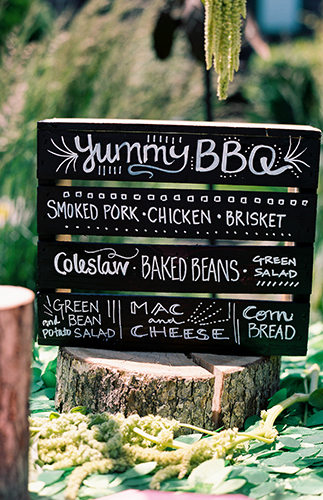 Yummy BBQ
SMOKED PORK · CHICKEN · BRISKET
Coleslaw · BAKED BEANS · GREEN SALAD
GREEN and BEAN Potato SALAD
MAC and CHEESE
Corn BREAD